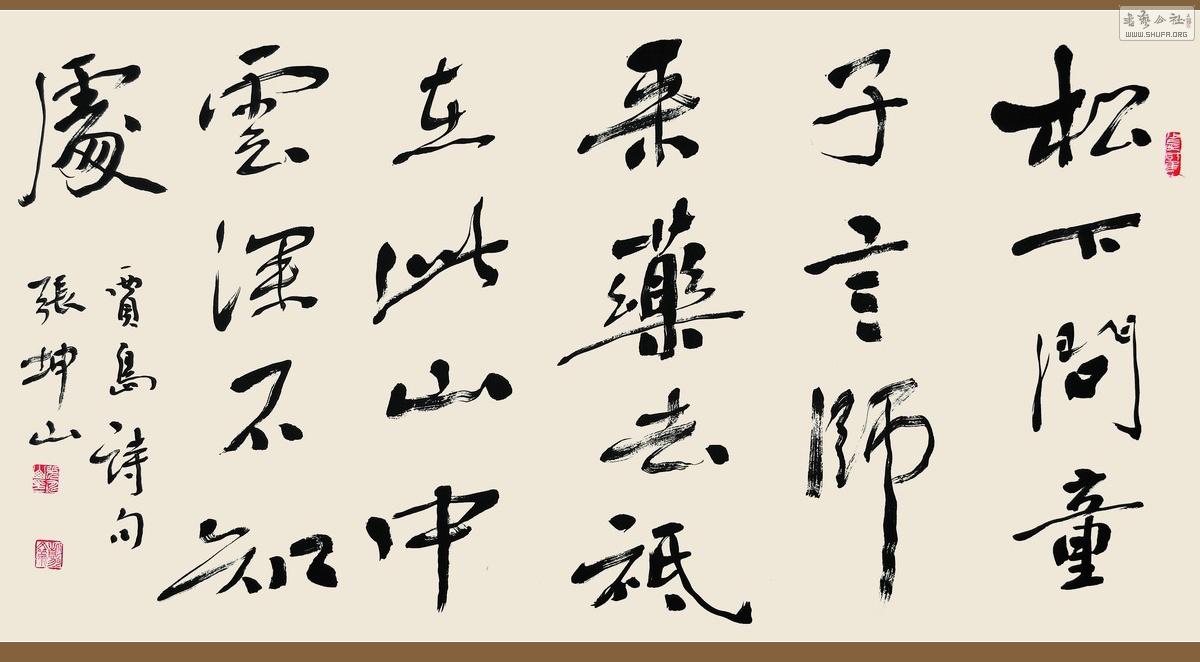 松下問童
子言師
采藥去祗
在此山中
雲深不知
處
賈島詩句
張坤山
書藝公社
WWW.SHUFA.ORG